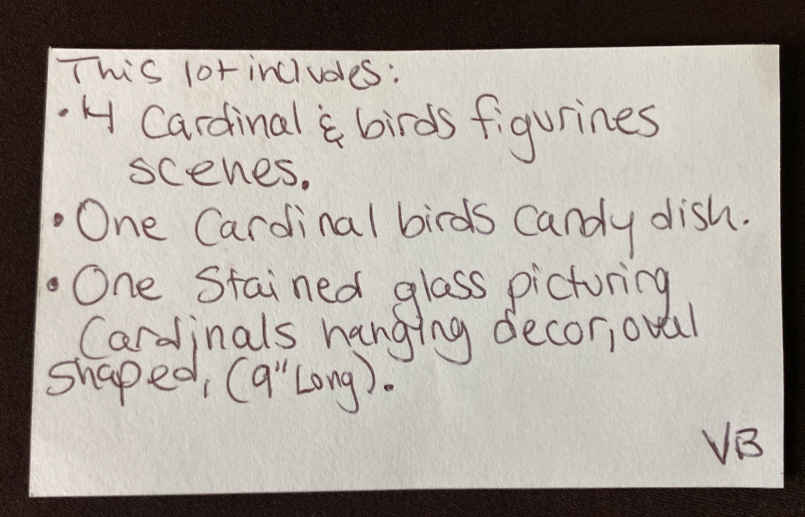 This lot includes:
• 4 Cardinal & birds figurines
scenes.
• One Cardinal birds candy dish.
• One Stained glass picturing
Cardinals hanging decor, oval
shaped, (9" Long).
VB